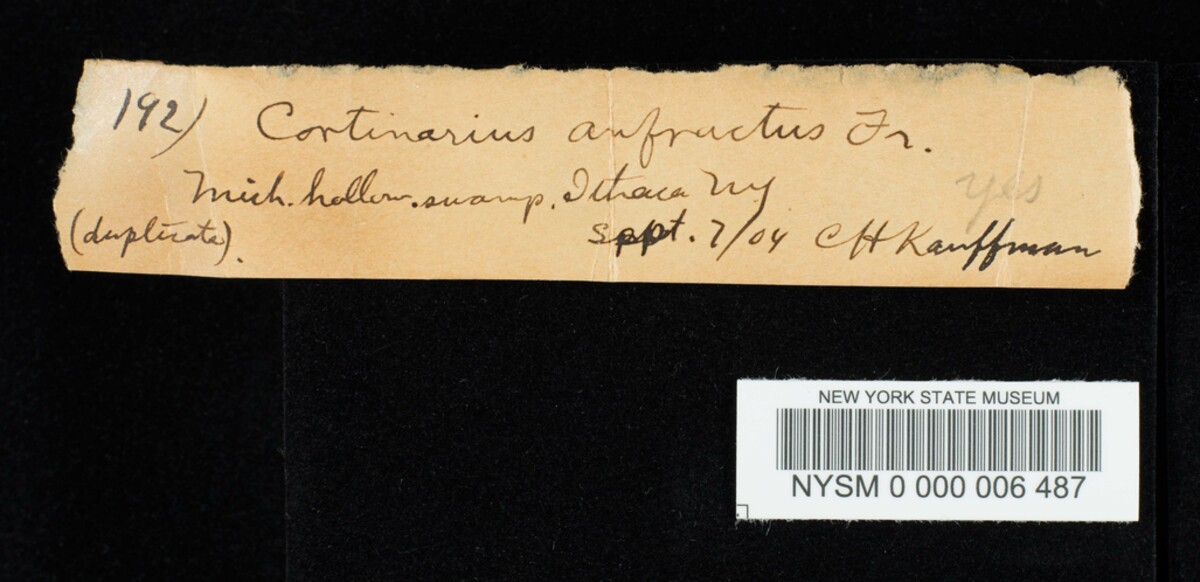 192) Cortinarius anfructus Fr.
Mich. hollow. swamp. Ithaca NY
yes
(duplicate). Sept. 7/04 CHKauffman
NEW YORK STATE MUSEUM
NYSM 0 000 006 487